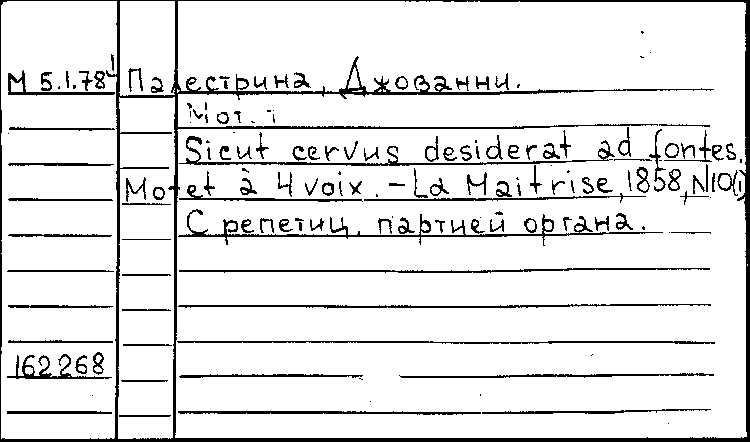 М 5.1.78¹ Палестрина, Джованни.
Мот.
Sicut cervus desiderat ad fontes.
Motet à 4 voix. – La Maitrise, 1858, N10(1)
С репетиц. партией органа.
162268